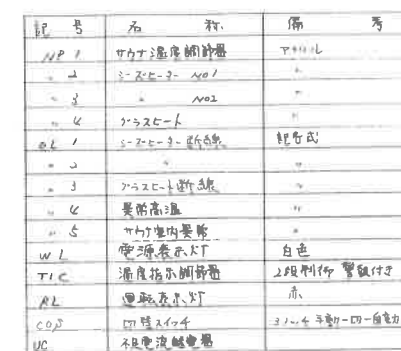 記号 名称 備考
NP 1 サウナ温度調節器 アクリル
〃 2 シーズヒーター NO1 〃
〃 3 〃 NO2 〃
〃 4 グラスヒート 〃
OL 1 シーズヒーター断線 記名式
〃 2 〃 〃
〃 3 グラスヒート断線 〃
〃 4 異常高温 〃
〃 5 サウナ室内異常 〃
WL 電源表示灯 白色
TIC 温度指示調節器 2段制御 警報付き
RL 運転表示灯 赤
COS 切替スイッチ 3ノッチ 手動-切-自動
UC 不足電流継電器